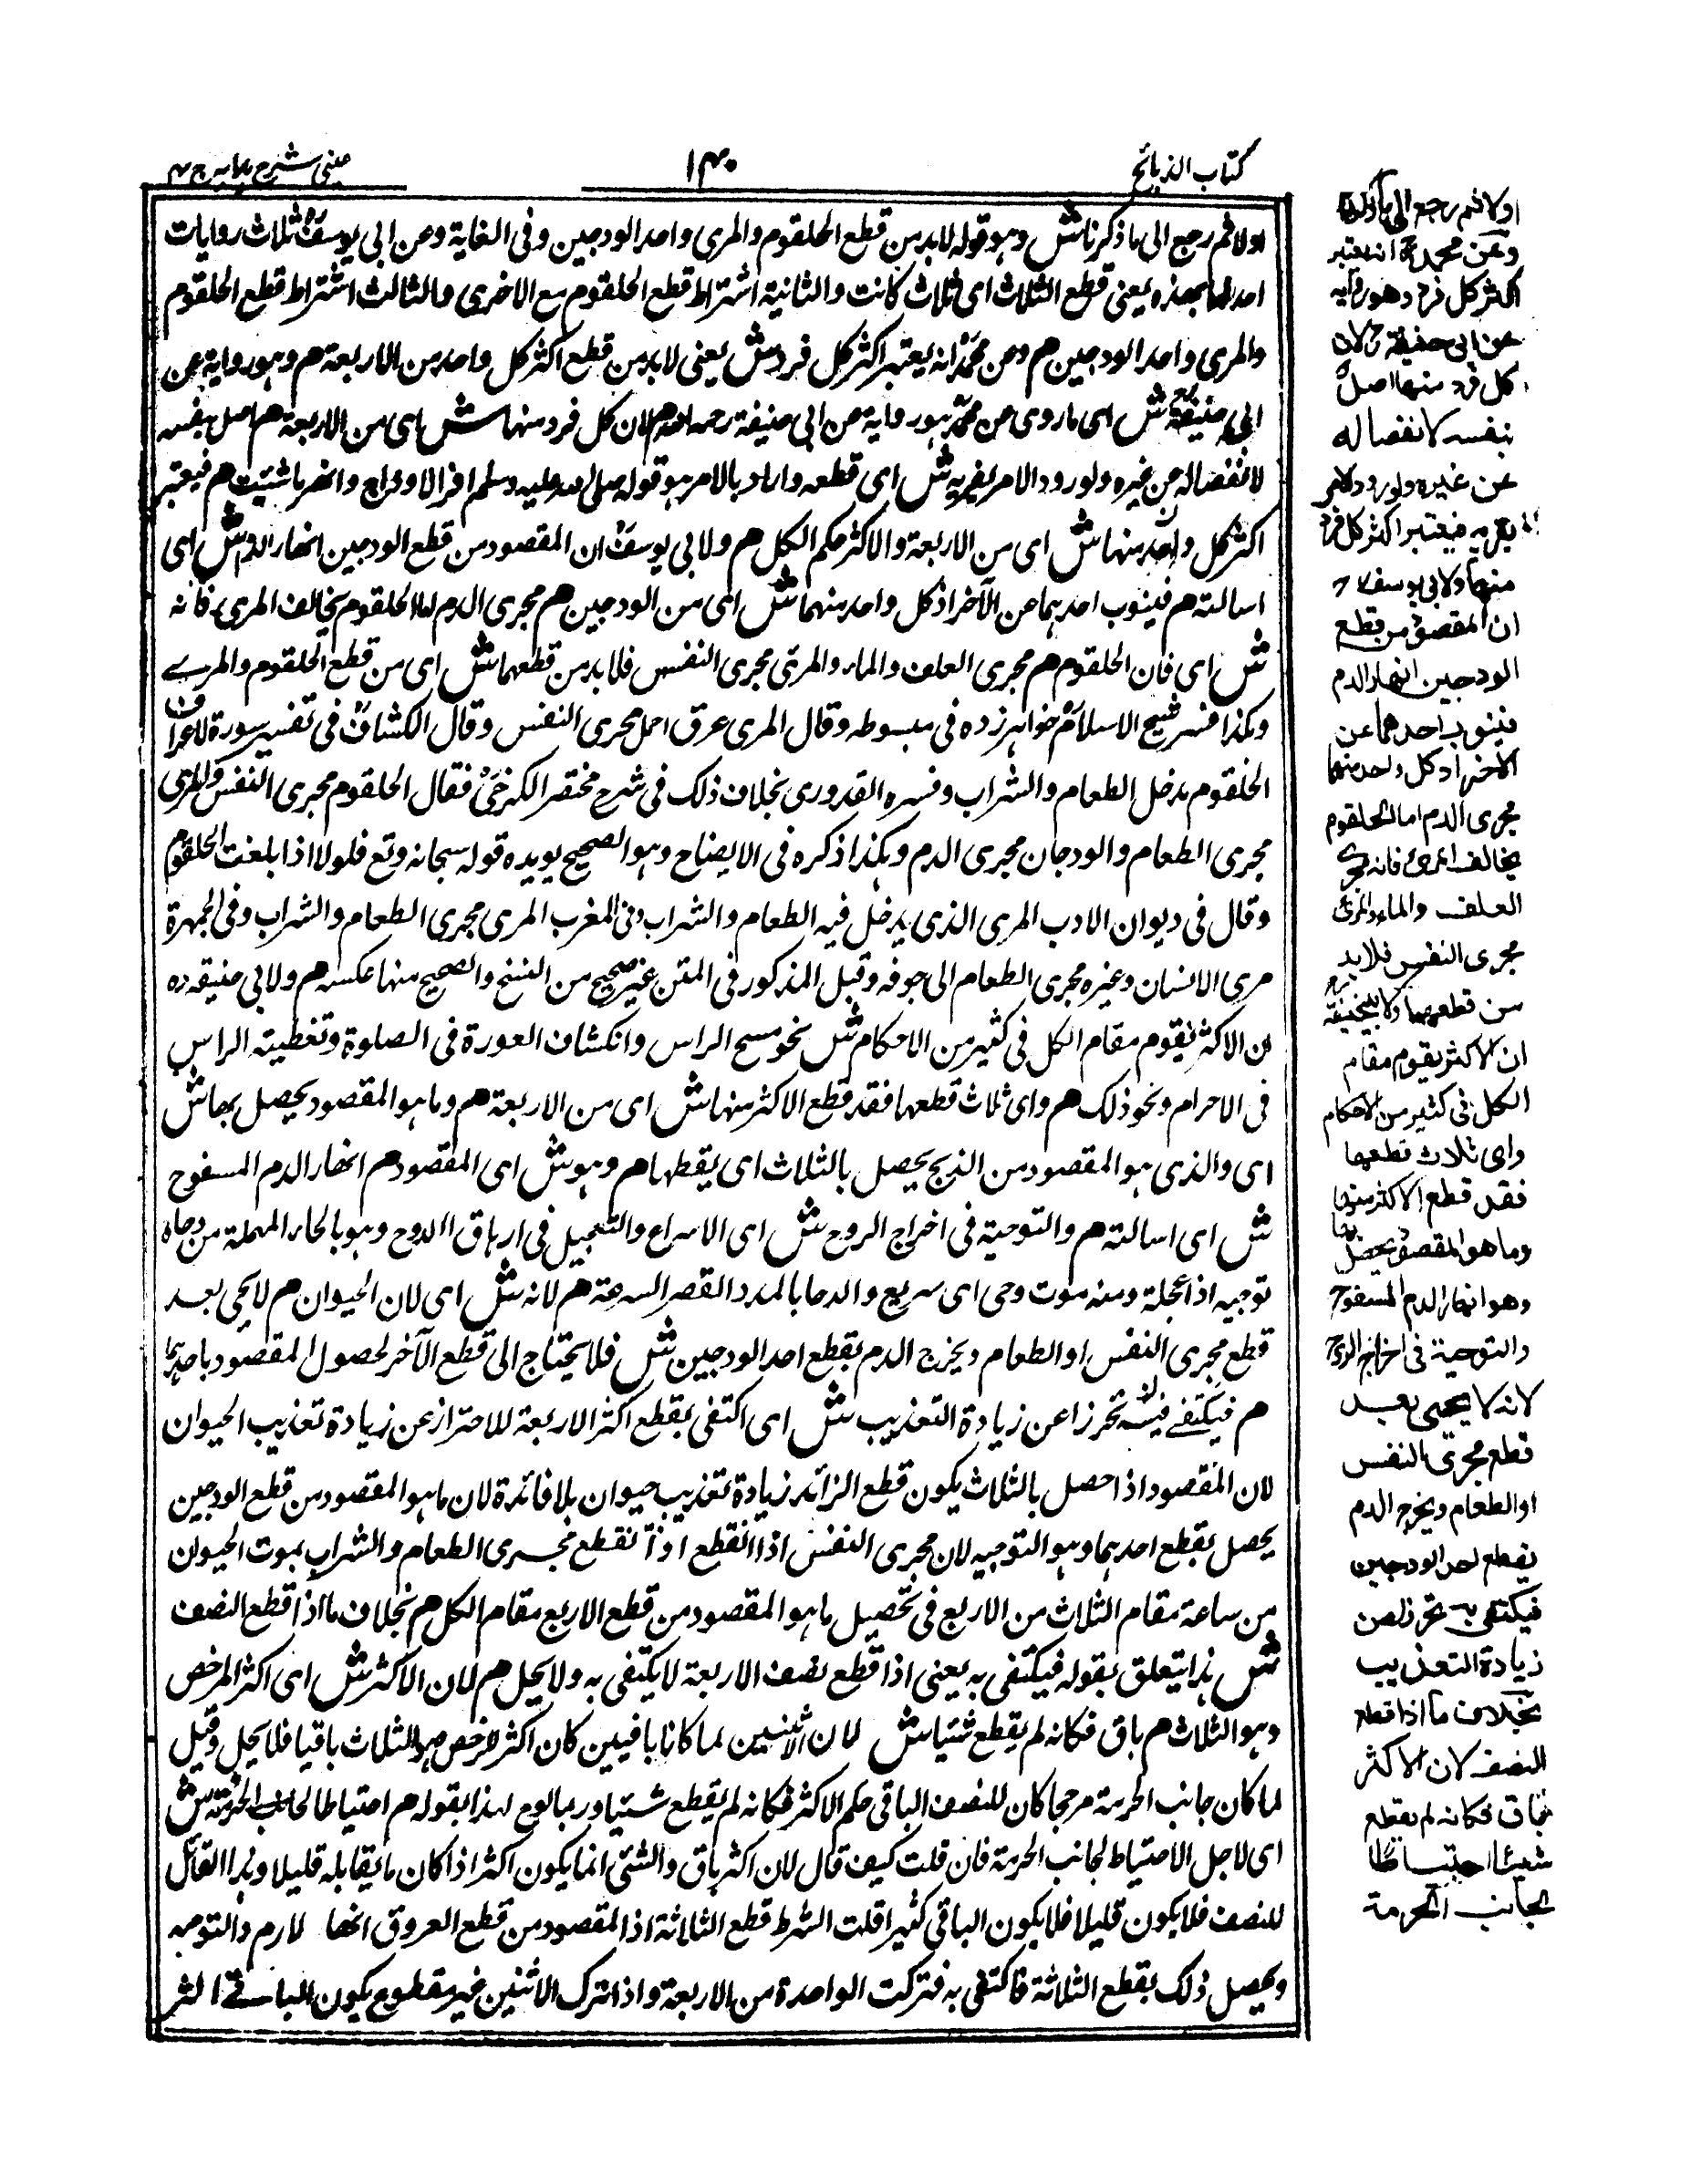 كتاب الذبائح
١٤٠
عینی شرح ہدایہ ج ٤
اولا ثم رجع الى ما ذكرنا ش وهو قوله لا بد من قطع الحلقوم والمرى واحد الودجين وفى الغاية وعن ابى يوسف ثلاث روايات
احدها هذه يعنى قطع الثلاث اى ثلاث كانت والثانية اشتراط قطع الحلقوم مع الاخرى والثالث اشتراط قطع الحلقوم
والمرى واحد الودجين هم وعن محمد انه يعتبر اكثر كل فرد ش يعنى لا بد من قطع اكثر كل واحد من الاربعة هم وهو رواية عن
ابى حنيفة ش اى ما روى عن محمد هو رواية عن ابى حنيفة رحمه الله هم لان كل فرد منها ش اى من الاربعة هم اصل بنفسه
لانفصاله عن غيره ولورود الامر بفريه ش اى قطعه واراد بالامر هو قوله صلى الله عليه وسلم افر الاوداج وانهر ما شئت هم فيعتبر
اكثر كل واحد منها ش اى من الاربعة والاكثر حكم الكل هم ولابى يوسف ان المقصود من قطع الودجين انهار الدم ش اى
اسالته هم فينوب احدهما عن الآخر اذ كل واحد منهما ش اى من الودجين هم مجرى الدم اما الحلقوم يخالف المرى فانه
ش اى فان الحلقوم هم مجرى العلف والماء والمرئ مجرى النفس فلا بد من قطعهما ش اى من قطع الحلقوم والمرے
وهكذا فسر شيخ الاسلام خواهر زده فى مبسوطه وقال المرى عرق احمر مجرى النفس وقال الكشاف فى تفسير سورة الاعراف
الحلقوم مدخل الطعام والشراب وفسره القدورى بخلاف ذلك فى شرح مختصر الكرخى فقال الحلقوم مجرى النفس والمرى
مجرى الطعام والودجان مجرى الدم وهكذا ذكره فى الايضاح وهو الصحيح يويده قوله سبحانه وتع فلولا اذا بلغت الحلقوم
وقال فى ديوان الادب المرى الذى يدخل فيه الطعام والشراب وفى المغرب المرى مجرى الطعام والشراب وفى الجمهرة
مرى الانسان وغيره مجرى الطعام الى جوفه وقيل المذكور فى المتن غير صحيح من النسخ والصحيح منها عكسه هم ولابى حنيفه ره
ان الاكثر يقوم مقام الكل فى كثير من الاحكام ش نحو مسح الراس وانكشاف العورة فى الصلوة وتغطية الراس
فى الاحرام ونحو ذلك هم واى ثلاث قطعها فقد قطع الاكثر منها ش اى من الاربعة هم وما هو المقصود يحصل بها ش
اى والذى هو المقصود من الذبح يحصل بالثلاث اى يقطعها هم وهو ش اى المقصود هم انهار الدم المسفوح
ش اى اسالته هم والتوحية فى اخراج الروح ش اى الاسراع والتعجيل فى ارهاق الروح وهو بالحاء المهملة من وحاه
توحيه اذا عجله ومنه موت وحى اى سريع والوحا بالمد والقصر السرعة هم لانه ش اى لان الحيوان هم لا يحيى بعد
قطع مجرى النفس او الطعام ويخرج الدم بقطع احد الودجين ش فلا يحتاج الى قطع الآخر لحصول المقصود باحدهما
هم فيكتفے به تحرزا عن زيادة التعذيب ش اى اكتفى بقطع اكثر الاربعة للاحتراز عن زيادة تعذيب الحيوان
لان المقصود اذا حصل بالثلاث يكون قطع الزائد زيادة تعذيب حيوان بلا فائدة لان ما هو المقصود من قطع الودجين
يحصل بقطع احدهما وهو التوحيه لان مجرى النفس اذا انقطع او انقطع مجرى الطعام والشراب يموت الحيوان
من ساعة مقام الثلاث من الاربع فى تحصيل ما هو المقصود من قطع الاربع مقام الكل هم بخلاف ما اذا قطع النصف
ش هذا يتعلق بقوله فيكتفى به يعنى اذا قطع نصف الاربعة لا يكتفى به ولا يحل هم لان الاكثر ش اى اكثر المرخص
وهو الثلاث هم باق فكانه لم يقطع شيئا ش لان الاثنين لما كانا باقيين كان اكثر المرخص وهو الثلاث باقيا فلا يحل وقيل
لما كان جانب الحرمة مرجحا كان للنصف الباقى حكم الاكثر فكانه لم يقطع شيئا وربما لوح لهذا بقوله هم احتياطا لجانب الحرمة ش
اى لاجل الاحتياط لجانب الحرمة فان قلت كيف قال لان اكثر باق والشئ انما يكون اكثر اذا كان ما يقابله قليلا وهذا القائل
للنصف فلا يكون قليلا فلا يكون الباقى كثيرا قلت الشرط قطع الثلاثة اذ المقصود من قطع العروق انهار الدم والتوحيه
ويحصل ذلك بقطع الثلاثة فاكتفى به فتركت الواحدة من الاربعة واذا ترك الاثنين غير مقطوع يكون الباقے اكثر
اولا ثم رجع الى ما ذكرنا
وعن محمد انه يعتبر
اكثر كل فرد وهو رواية
عن ابى حنيفة لان
كل فرد منها اصل
بنفسه لانفصاله
عن غيره ولورود الامر
بفريه فيعتبر اكثر كل فرد
منها ولابى يوسف
ان المقصود من قطع
الودجين انهار الدم
فينوب احدهما عن
الآخر اذ كل واحد منهما
مجرى الدم اما الحلقوم
يخالف المرئ فانه مجرى
العلف والماء والمرئ
مجرى النفس فلا بد
من قطعهما ولابى حنيفة
ان الاكثر يقوم مقام
الكل فى كثير من الاحكام
واى ثلاث قطعها
فقد قطع الاكثر منها
وما هو المقصود يحصل بها
وهو انهار الدم المسفوح
والتوحية فى اخراج الروح
لانه لا يحيى بعد
قطع مجرى النفس
او الطعام ويخرج الدم
بقطع احد الودجين
فيكتفى به تحرزا عن
زيادة التعذيب
بخلاف ما اذا قطع
النصف لان الاكثر
باق فكانه لم يقطع
شيئا احتياطا
لجانب الحرمة